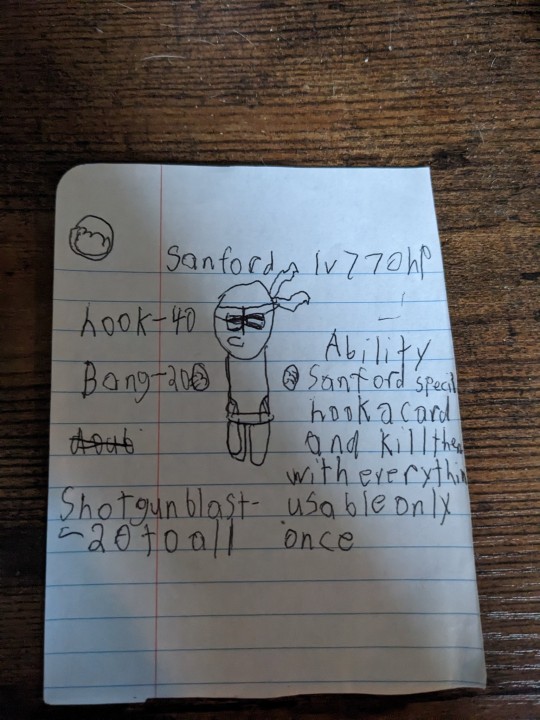 Sanford lv770hp
hook-40
Bang-20
Shotgun blast-
-20 to all
Ability
Sanford special
hook a card
and kill them
with everythin
usable only
once